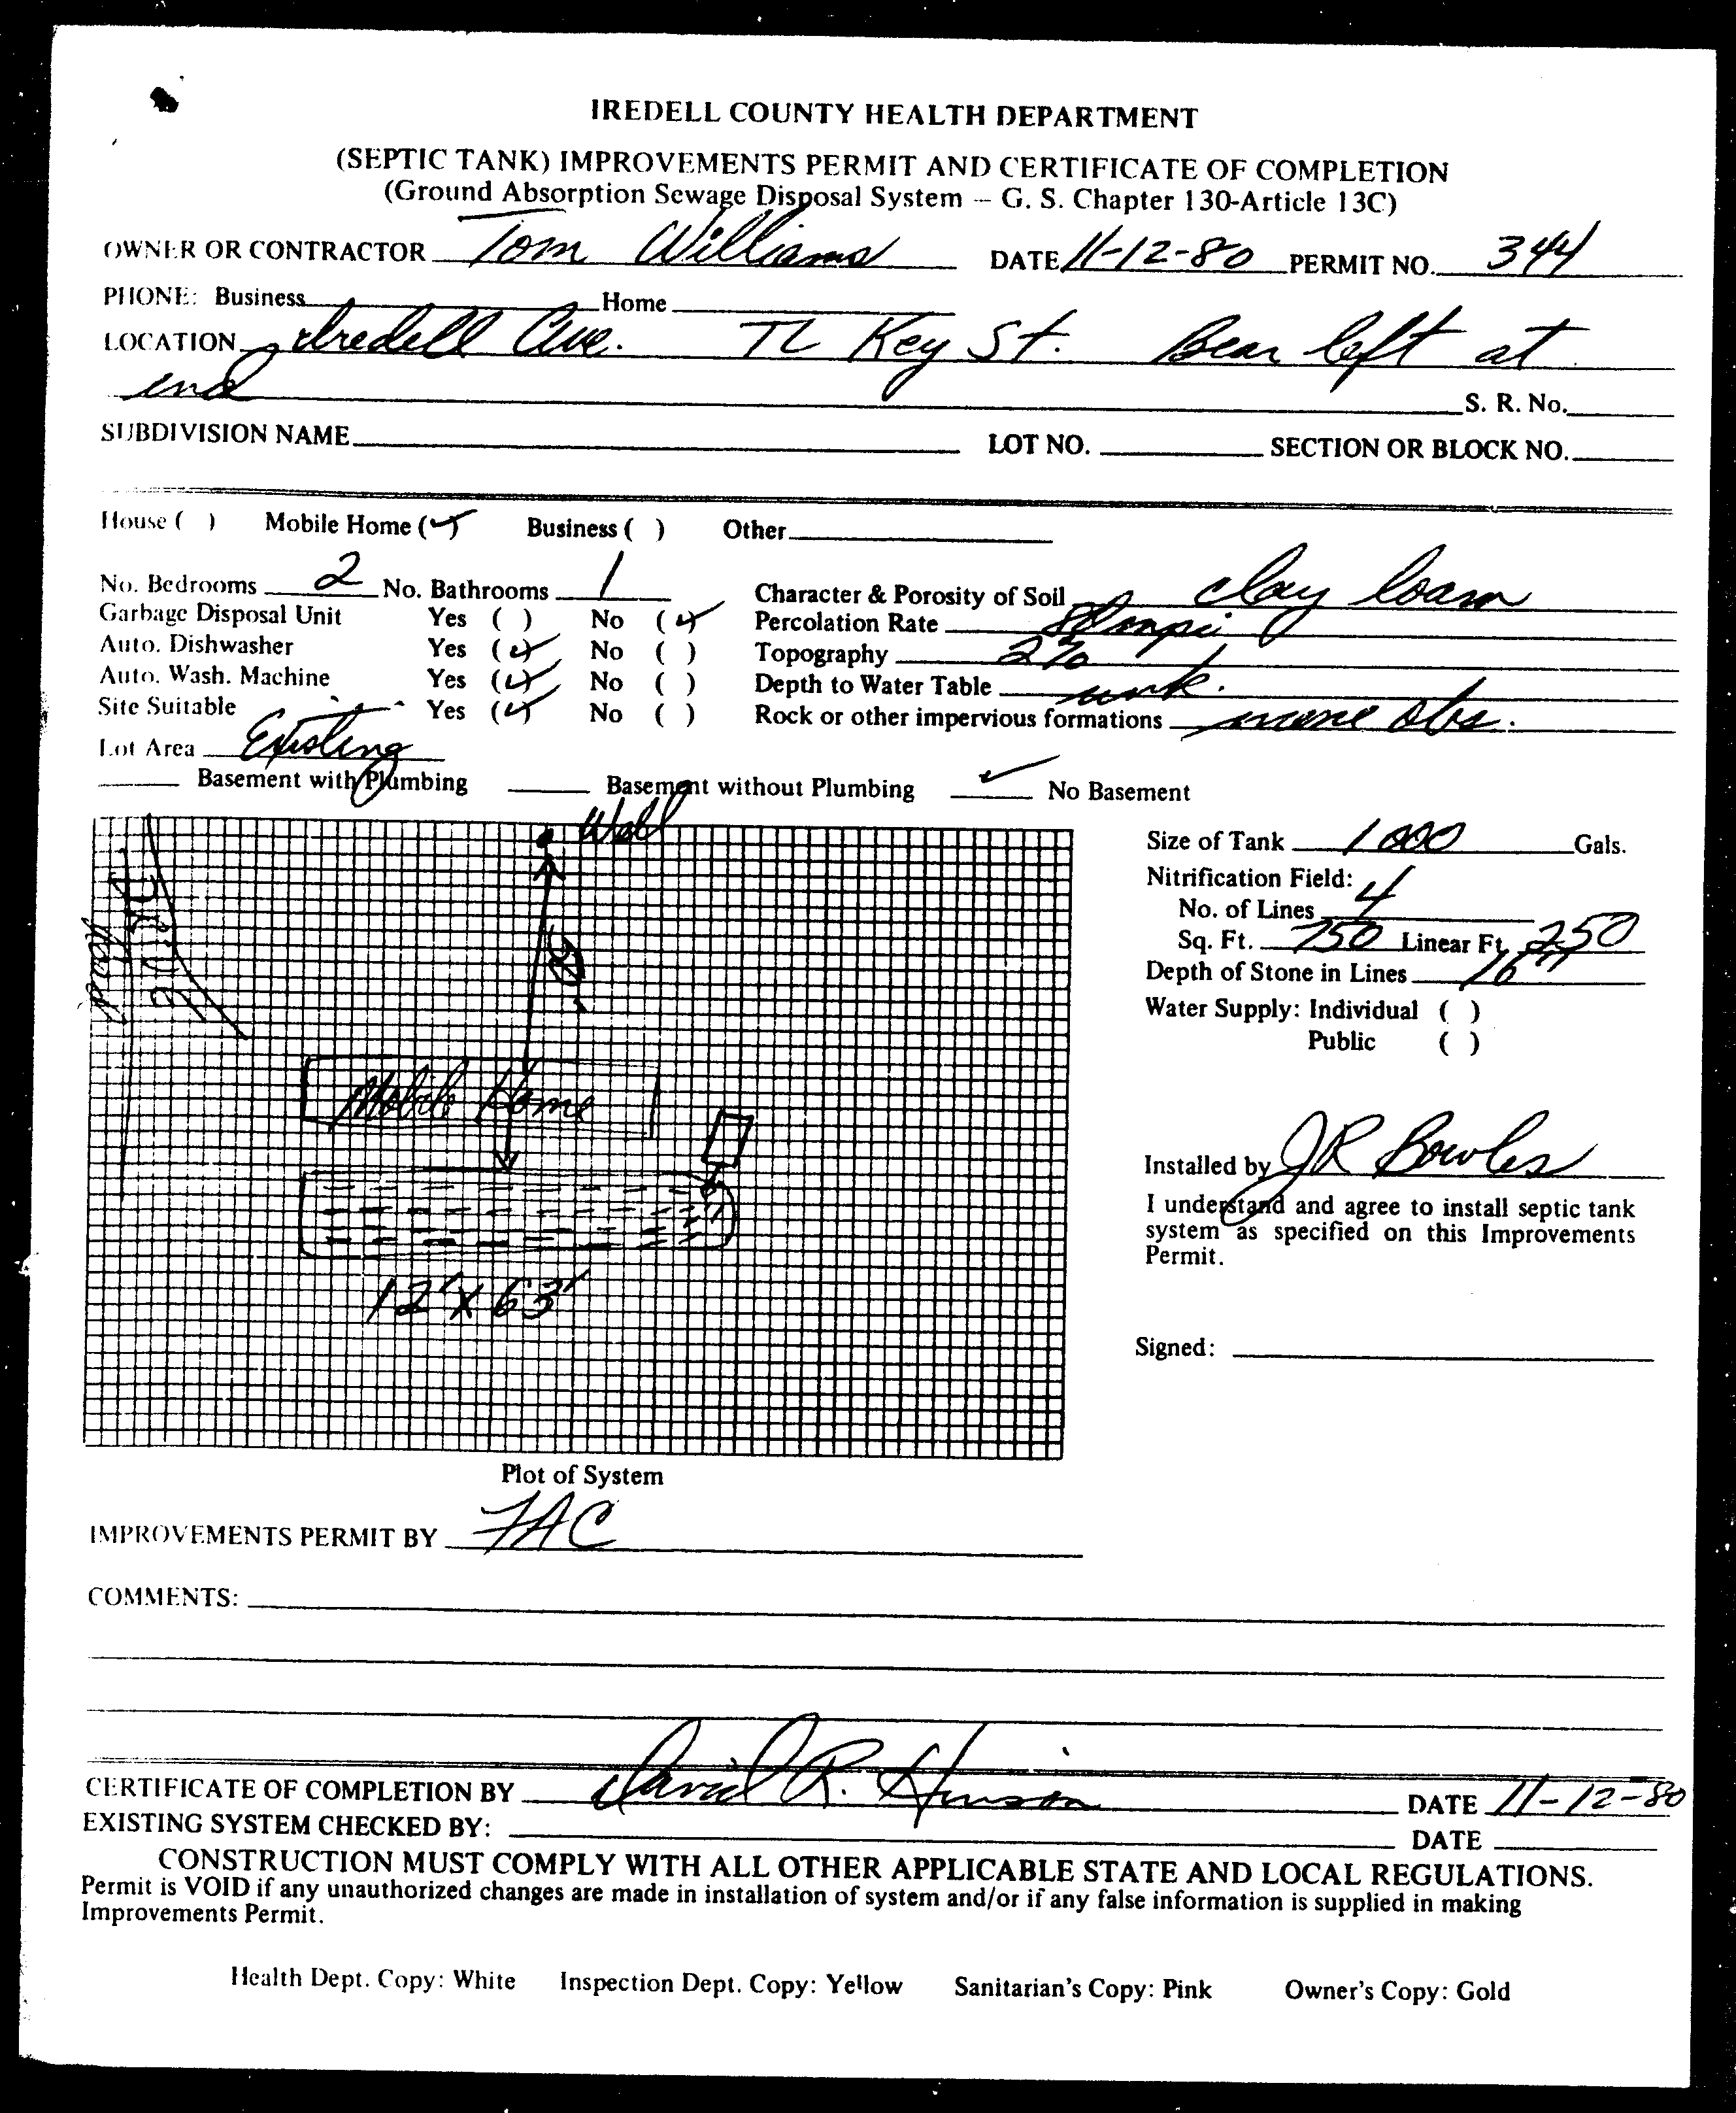 IREDELL COUNTY HEALTH DEPARTMENT
(SEPTIC TANK) IMPROVEMENTS PERMIT AND CERTIFICATE OF COMPLETION
(Ground Absorption Sewage Disposal System – G. S. Chapter 130-Article 13C)
OWNER OR CONTRACTOR Tom Williams DATE 11-12-80 PERMIT NO. 344
PHONE: Business Home
LOCATION Iredell Ave. TL Key St. Bear left at
end S. R. No.
SUBDIVISION NAME LOT NO. SECTION OR BLOCK NO.
House ( ) Mobile Home (✓) Business ( ) Other
No. Bedrooms 2 No. Bathrooms 1 Character & Porosity of Soil clay loam
Garbage Disposal Unit Yes ( ) No (✓) Percolation Rate mpi
Auto. Dishwasher Yes (✓) No ( ) Topography 2%
Auto. Wash. Machine Yes (✓) No ( ) Depth to Water Table unk.
Site Suitable Yes (✓) No ( ) Rock or other impervious formations none obs.
Lot Area Existing
Basement with Plumbing Basement without Plumbing ✓ No Basement
Well
Road
Drive
Mobile Home
12' x 63'
Plot of System
Size of Tank 1000 Gals.
Nitrification Field:
No. of Lines 4
Sq. Ft. 750 Linear Ft. 250
Depth of Stone in Lines 16"
Water Supply: Individual ( )
Public ( )
Installed by JR Bowles
I understand and agree to install septic tank
system as specified on this Improvements
Permit.
Signed:
IMPROVEMENTS PERMIT BY FAC
COMMENTS:
CERTIFICATE OF COMPLETION BY David R. Hinson DATE 11-12-80
EXISTING SYSTEM CHECKED BY: DATE
CONSTRUCTION MUST COMPLY WITH ALL OTHER APPLICABLE STATE AND LOCAL REGULATIONS.
Permit is VOID if any unauthorized changes are made in installation of system and/or if any false information is supplied in making
Improvements Permit.
Health Dept. Copy: White Inspection Dept. Copy: Yellow Sanitarian's Copy: Pink Owner's Copy: Gold